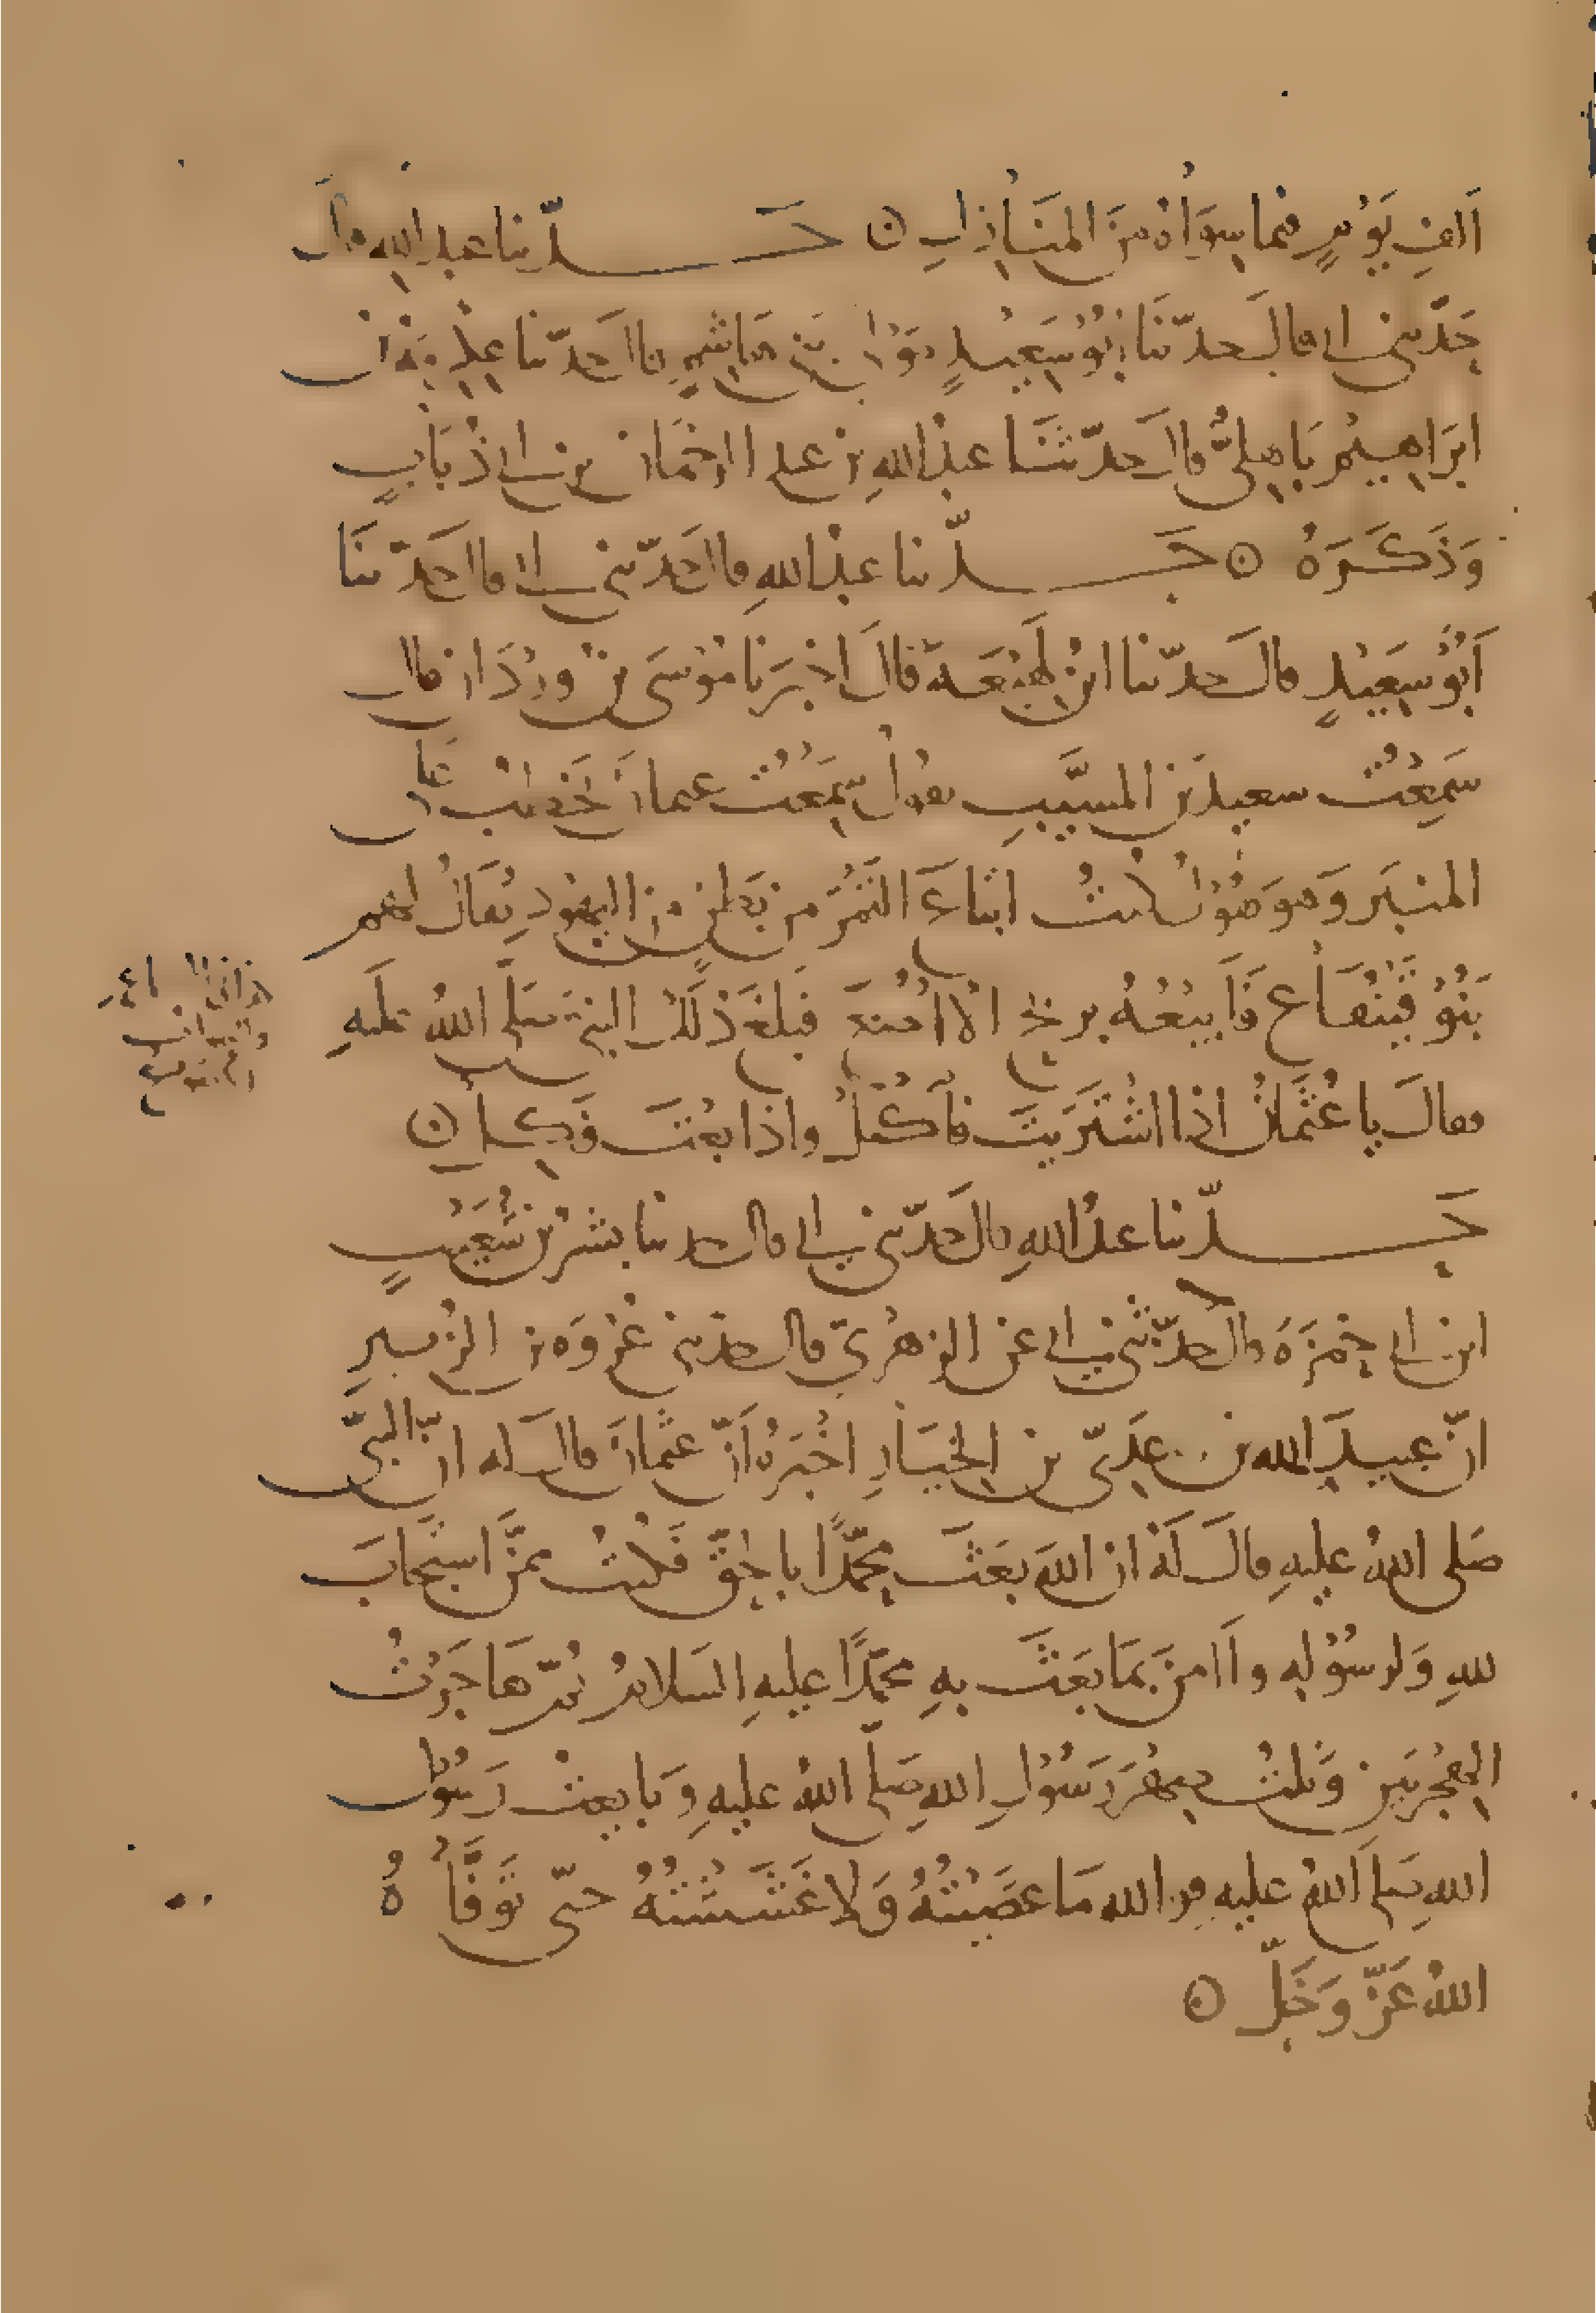 الف يَوْمٍ فيما سِوَاهُ مِنَ المنَازِلِ ۞ حَدّثنا عبد الله قال
حَدّثني ابي قالَ حدّثنَا ابُو سَعِيْدٍ مَوْلى بَني هَاشِمٍ قال حَدّثنا
ابرَاهِيْمُ بَاهِلِيٌّ قالَ حدّثنَا عبدُ اللهِ بن عبد الرحمٰن بن ابي ذُبَابٍ
وَذَكَرَهُ ۞ حَدّثنا عبدُ اللهِ قال حَدّثني ابي قال حَدّثنَا
اَبُو سَعِيْدٍ قالَ حدّثنا ابنُ لَهِيْعَةَ قالَ اخبَرَنا مُوْسَى بنُ وَرْدَان قال
سَمِعْتُ سعيدَ بن المسَيَّبِ يقولُ سَمِعْتُ عثمانَ يَخْطُبُ عَلَى
المنبَرِ وَهوَ يَقُوْلُ كنتُ ابتَاعُ التَّمْرَ من بَطنٍ منَ اليهُودِ يُقَالُ لهم
بَنُوْ قَيْنُقَاعَ فَاَبيْعُهُ بربْحِ الآصُعِ فبلغَ ذلكَ النبيَّ صَلَّى اللهُ عَلَيهِ
فقالَ يا عُثمَانُ اذا اشْتَرَيتَ فَاَكْتَلْ واذا بعْتَ فَكِلْ ۞
حَدّثنا عبدُ اللهِ قالَ حَدّثني ابي قال حدثنا بشرُ بنُ شُعَيْبٍ
ابن ابي حَمْزَةَ قالَ حدّثني ابي عن الزهْرِيّ قال حدّثني عُرْوَة بن الزُبيرِ
انّ عبيدَ الله بن عَدِيّ بن الخيَارِ اخْبَرَهُ اَنّ عثمانَ قالَ له ابن النبيّ
صَلى اللهُ عليهِ قالَ لَهُ ان اللهَ بعَثَ محمّدًا بالحَقّ فكنْتُ ممّنِ استَجَابَ
للهِ وَلرسُوْلِهِ وآمنَ بمَا بعَثَ بهِ محمّدًا عليهِ السَلامُ ثمّ هَاجَرْتُ
الهِجْرتَين وَنلتُ صِهْرَ رَسُوْلِ اللهِ صَلّى اللهُ عليهِ وَبايعتُ رَسُوْلَ
اللهِ صَلى اللهُ عليهِ فوالله مَا عَصَيْتُهُ وَلا غَشَشْتُهُ حتّى تَوَفَّاهُ
اللهُ عَزّ وَجَلّ ۞